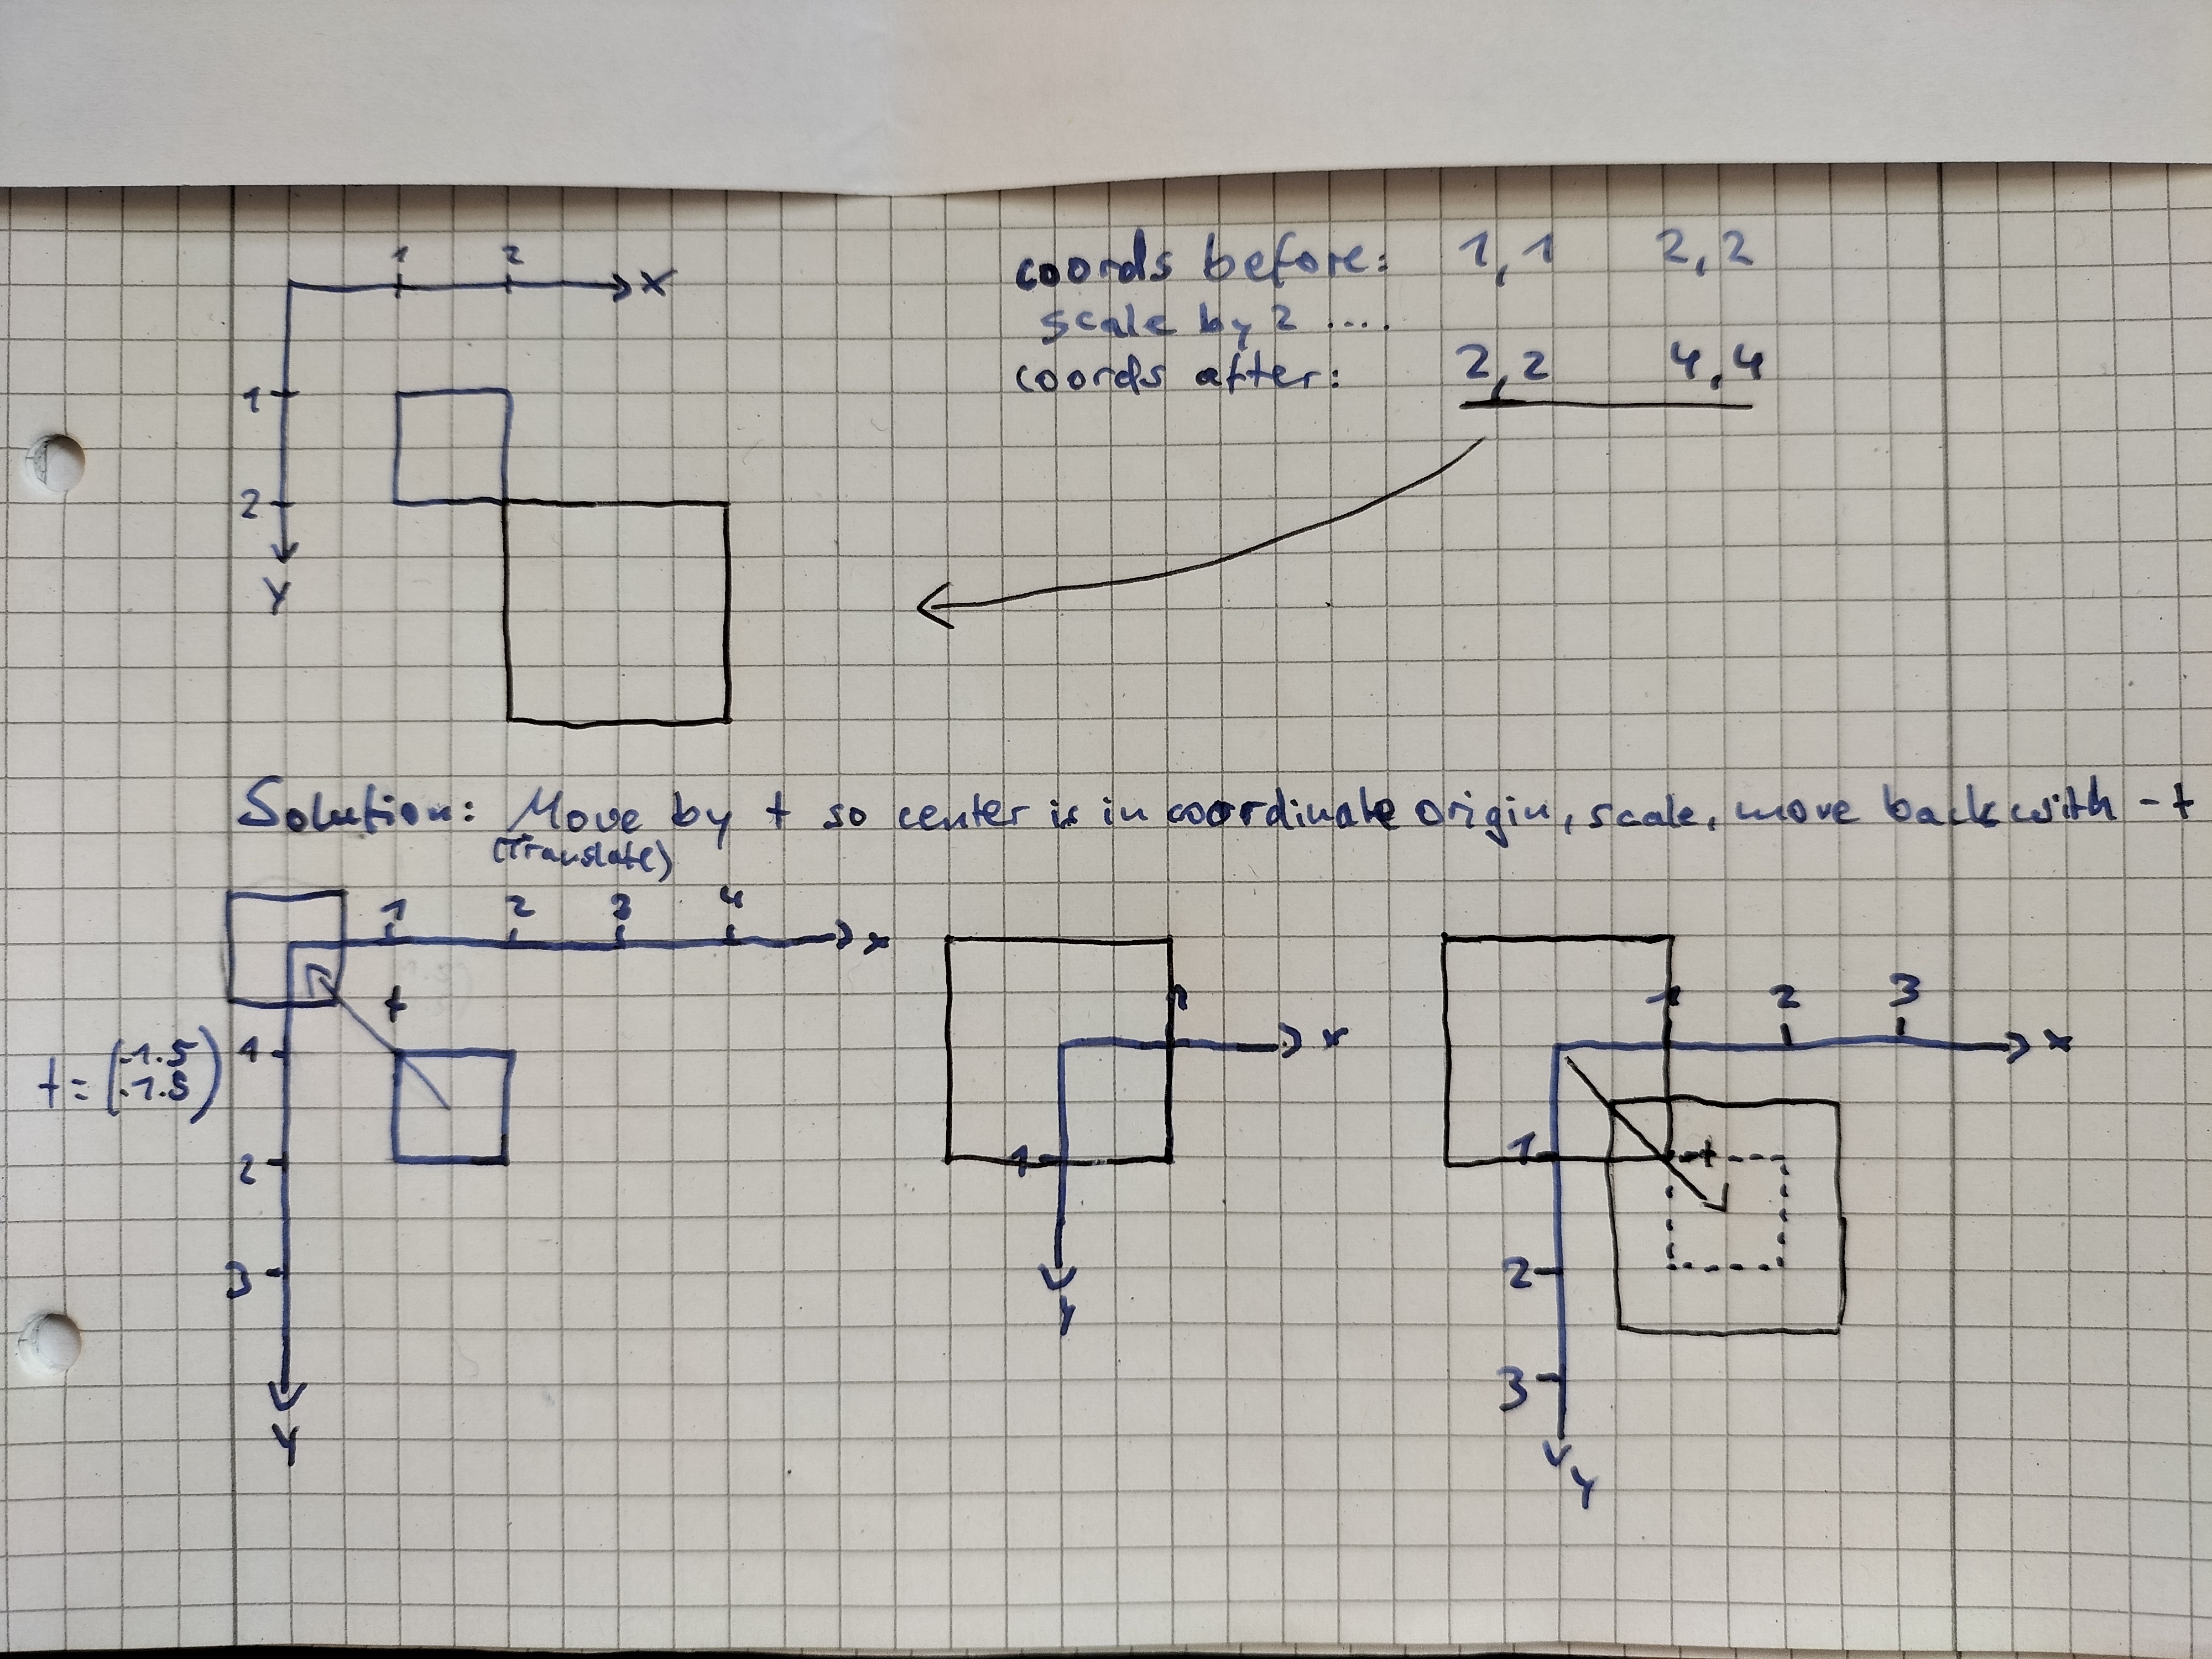 1 2
x
1
2
Y
coords before: 1,1 2,2
scale by 2 ....
coords after: 2,2 4,4
Solution: Move by t so center is in coordinate origin, scale, move back with -t
(Translate)
1 2 3 4
x
t
t = (-1.5
-1.5)
1
2
3
Y
1
x
1
Y
1 2 3
x
1
t
2
3
Y